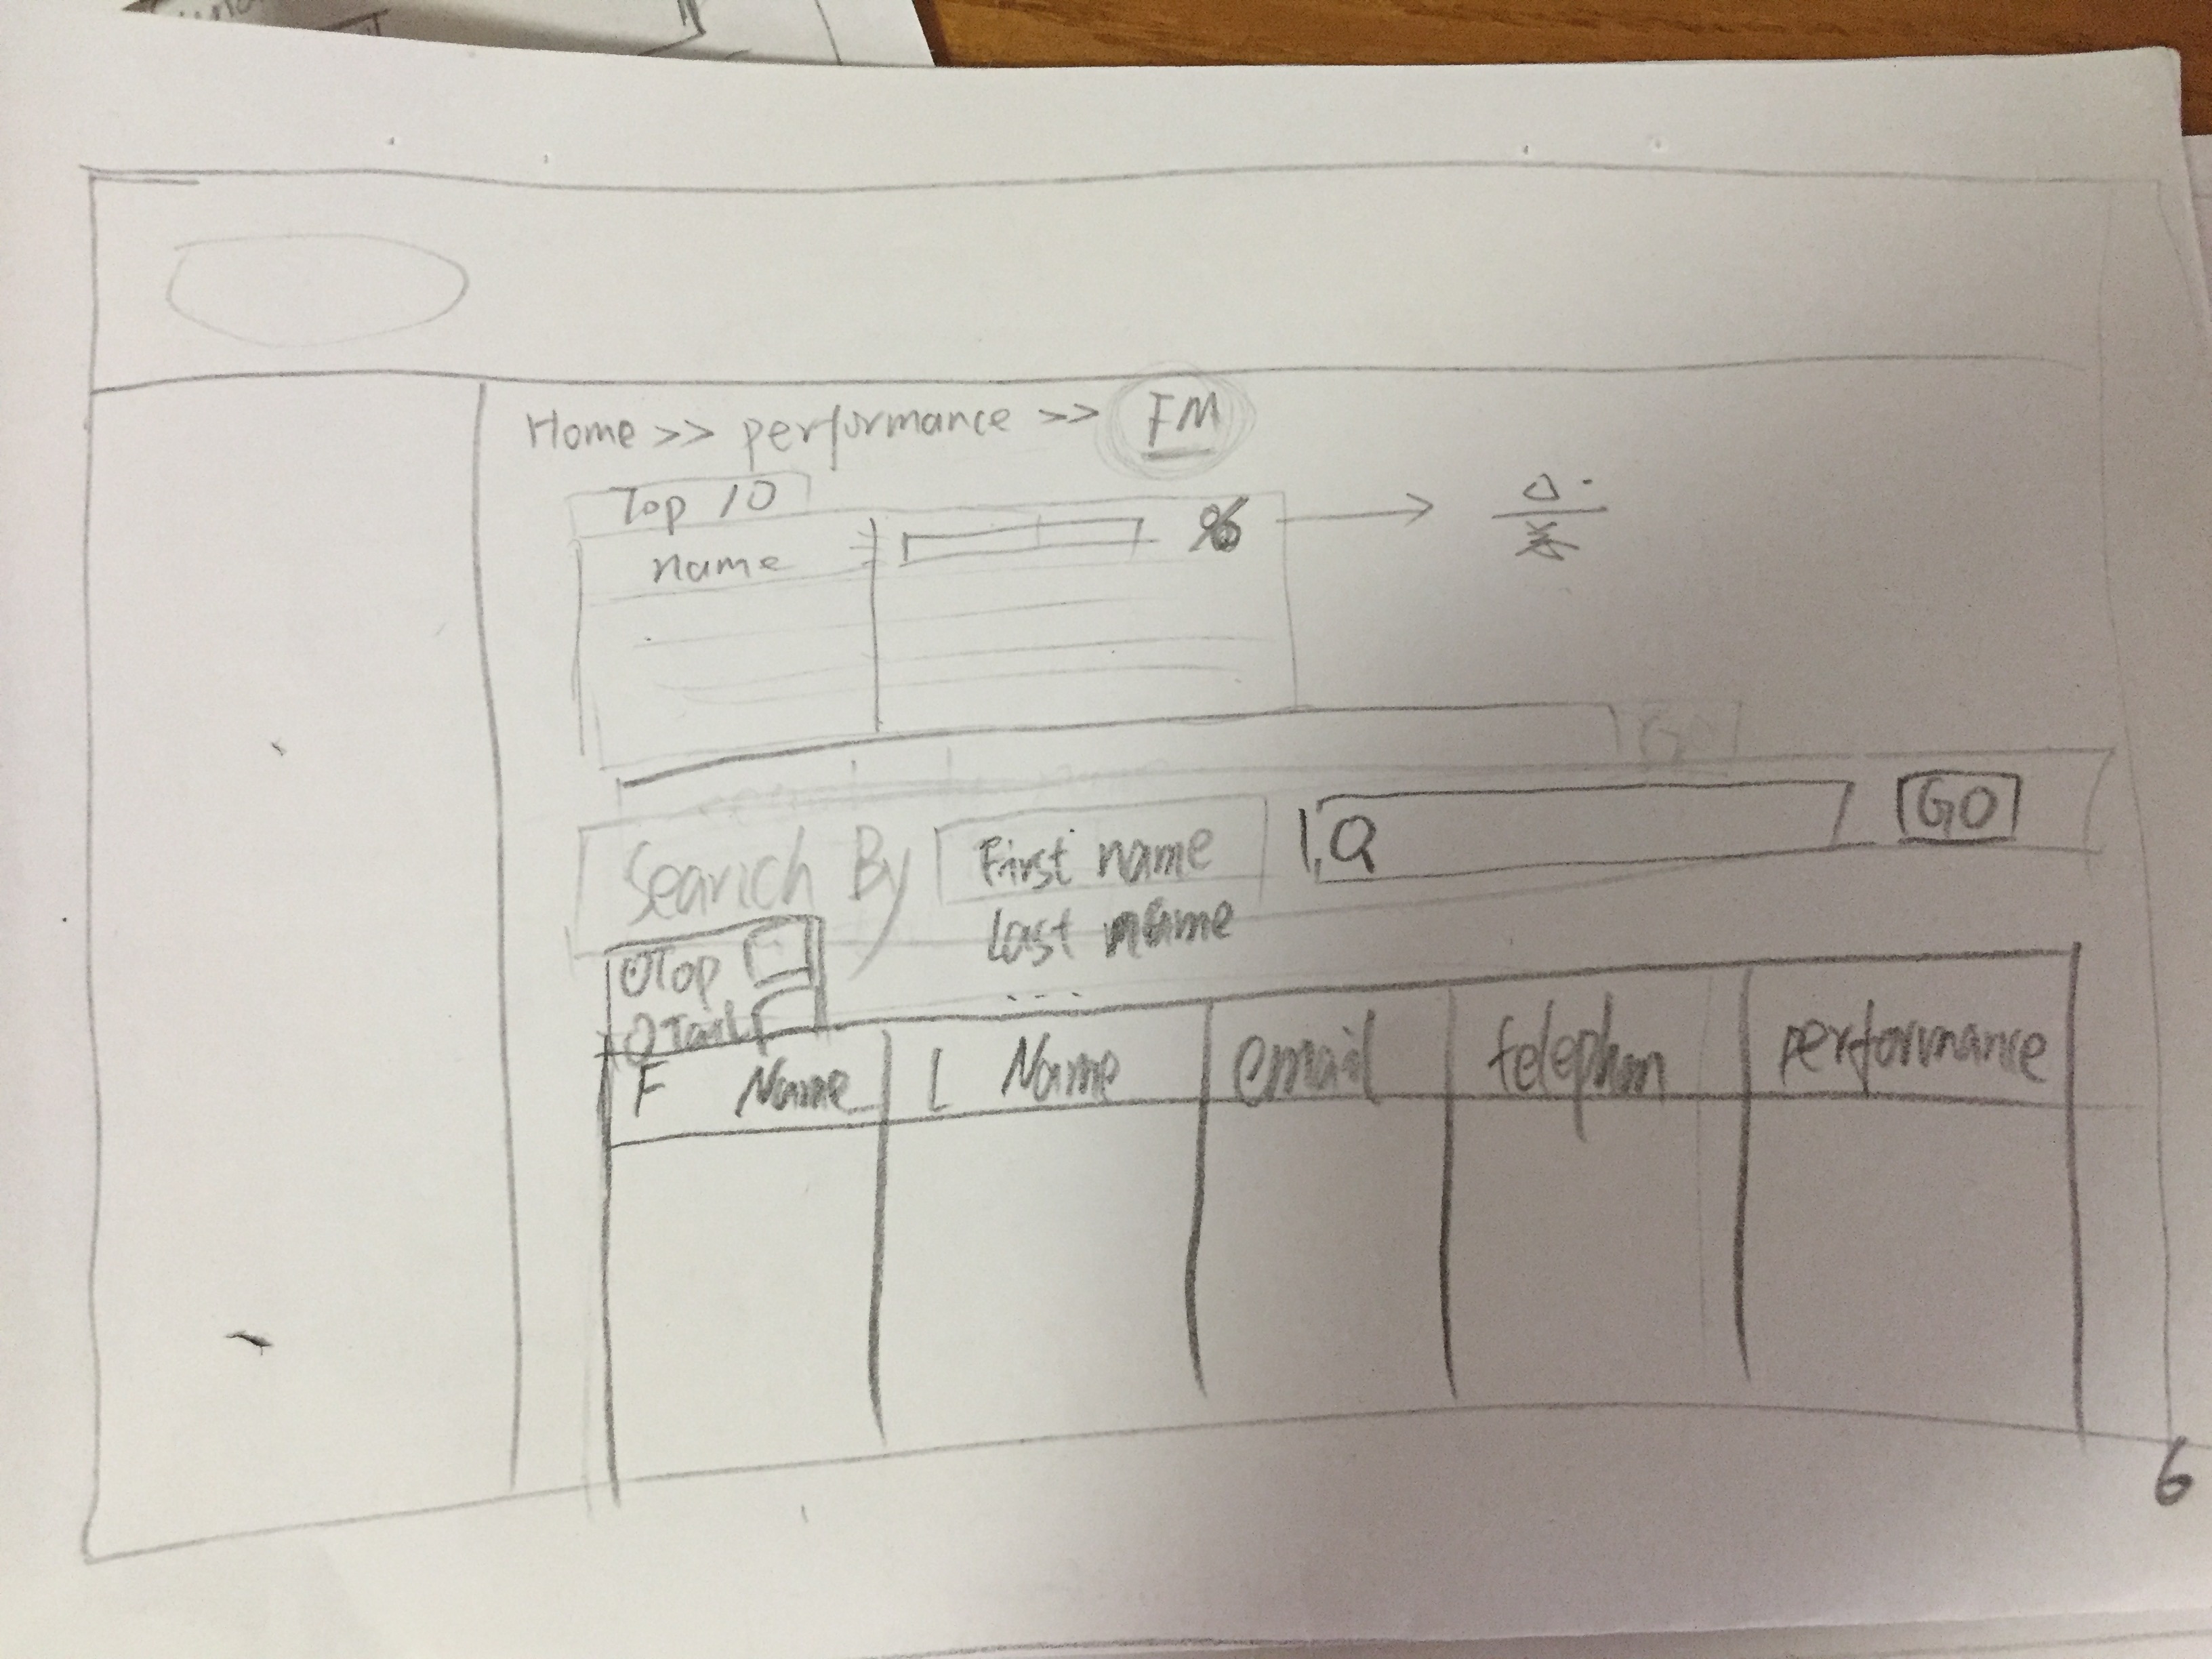 Home >> performance >> FM
Top 10
name %
Search By First name Q GO
last name
...
Top
Tail
F Name L Name email telephon performance
6